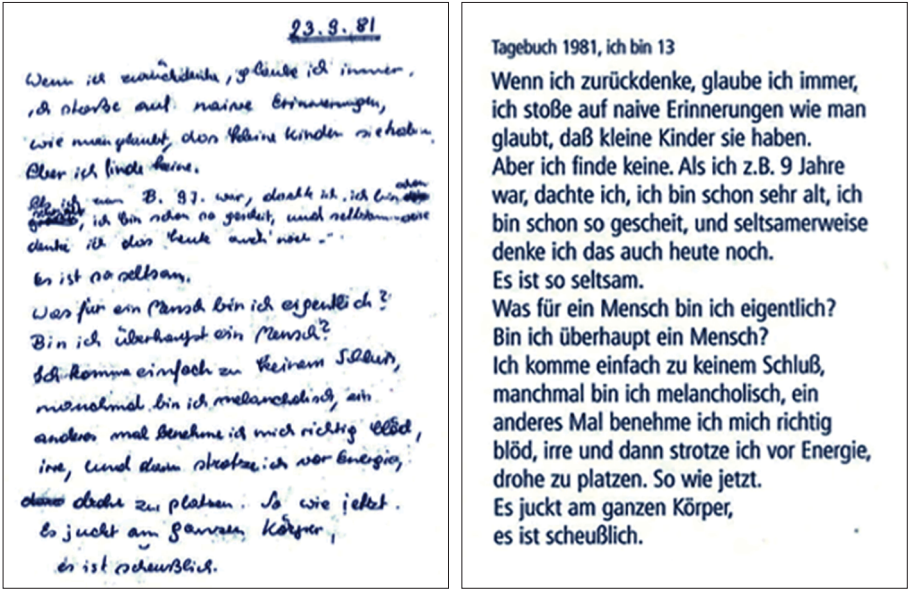 23.9.81
Wenn ich zurückdenke, glaube ich immer,
ich stoße auf naive Erinnerungen,
wie man glaubt, das kleine Kinder sie haben.
Aber ich finde keine.
Als ich zum B. 9J. war, dachte ich, ich bin schon
sehr alt, ich bin schon so gescheit, und seltsamerweise
denke ich das heute auch noch
Es ist so seltsam.
Was für ein Mensch bin ich eigentlich?
Bin ich überhaupt ein Mensch?
Ich komme einfach zu keinem Schluß,
manchmal bin ich melancholisch, ein
anderes mal benehme ich mich richtig blöd,
irre, und dann strotze ich vor Energie,
drohe zu platzen. So wie jetzt.
Es juckt am ganzen Körper,
es ist scheußlich.
Tagebuch 1981, ich bin 13
Wenn ich zurückdenke, glaube ich immer,
ich stoße auf naive Erinnerungen wie man
glaubt, daß kleine Kinder sie haben.
Aber ich finde keine. Als ich z.B. 9 Jahre
war, dachte ich, ich bin schon sehr alt, ich
bin schon so gescheit, und seltsamerweise
denke ich das auch heute noch.
Es ist so seltsam.
Was für ein Mensch bin ich eigentlich?
Bin ich überhaupt ein Mensch?
Ich komme einfach zu keinem Schluß,
manchmal bin ich melancholisch, ein
anderes Mal benehme ich mich richtig
blöd, irre und dann strotze ich vor Energie,
drohe zu platzen. So wie jetzt.
Es juckt am ganzen Körper,
es ist scheußlich.